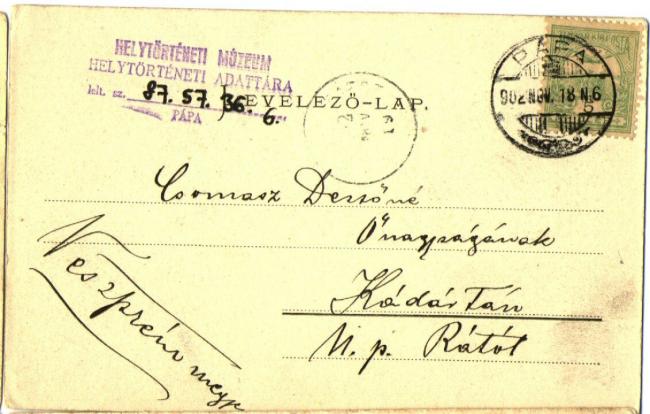 HELYTÖRTÉNETI MÚZEUM
HELYTÖRTÉNETI ADATTÁRA
lelt. sz. 87. 57. 36. 6.
PÁPA
LEVELEZŐ-LAP.
PÁPA
902 NOV. 18 N.6
Csomasz Dersőné
Őnagyságának
Kádártán
U. p. Rátót
Veszprém megye